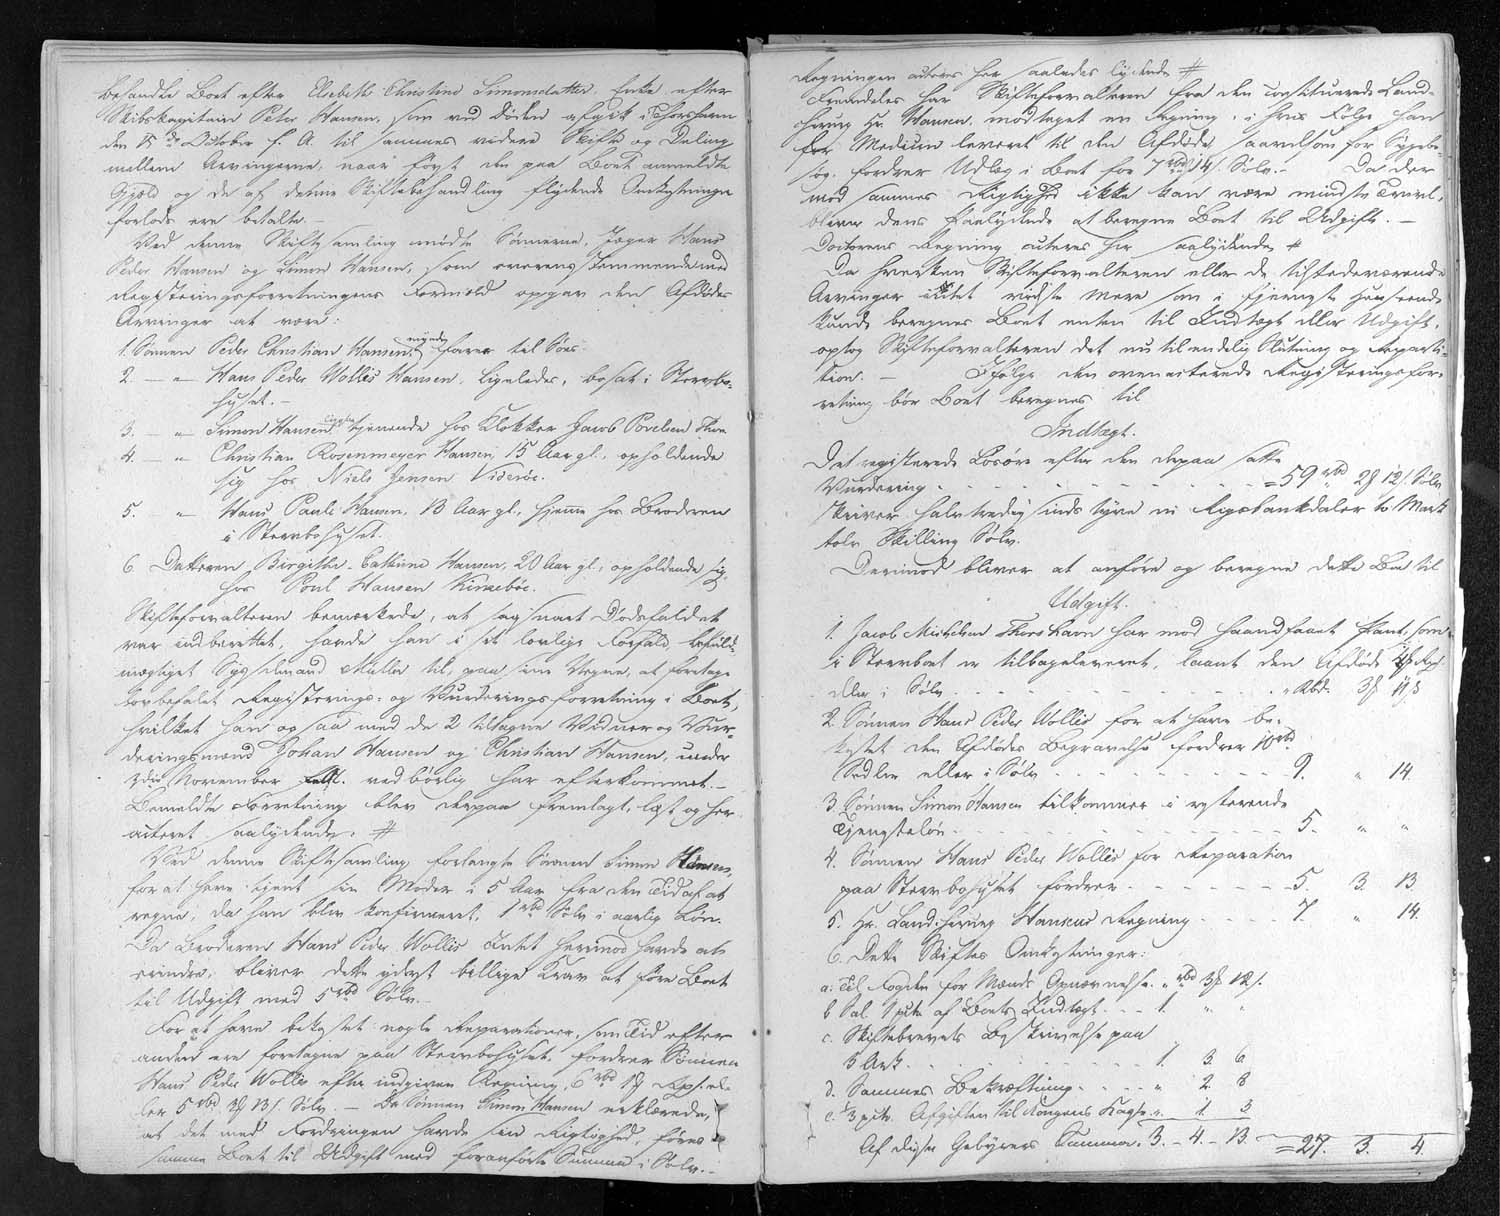 behandle Boet efter Elsebeth Christine Simonsdatter, Enke efter
Skibskapitain Peter Hansen, som ved Døden afgik i Thorshavn
den October f. A. til sammes videre Skifte og Deling
mellem Arvingerne, naar først den paa Boet anmeldte
Gjæld og de af denne Skiftebehandling flydende Omkostninger
forlods ere betalte.
Ved denne Skiftesamling mødte Sønnerne, Jæger Hans
Peder Hansen og Simon Hansen, som overensstemmende med
Registeringsforretningens Formæld opgav den Afdødes
Arvinger at være:
1. Sønnen Peder Christian Hansen, myndig, farer til Søes.
2. — " — Hans Peder Wolles Hansen, ligeledes, bosat i Sterbo-
huset. —
3. — " — Simon Hansen tjenende hos Klokker Jacob Povelsen Thor
4. — " Christian Rosenmeyer Hansen, 15 Aar gl., opholdende
sig hos Niels Jensen Viderøe.
5. — " Hans Pauli Hansen, 13 Aar gl., hjemme hos Broderen
i Sterboehuset.
6. Datteren Birgithe Cathrine Hansen, 20 Aar gl., opholdende sig
hos Poul Hansen Kirkebøe.
Skifteforvalteren bemærkede, at saasnart Dødsfaldet
var indberettet, havde han i sit lovlige Forfald befuld-
mægtiget Sysselmand Müller til, paa sine Vegne, at foretage
bor befalet Registerings- og Vurderings forretning i Boet,
hvilket han ogsaa med de 2 tiltagne Vidner og Vur-
deringsmænd Johan Hansen og Christian Hansen, under
2den November vedbørlig har efterkommet. —
Bemeldte Forretning blev derpaa fremlagt, læst og her
acteret saalydende: #
Ved denne Skiftesamling forlangte Sønnen Simon Hansen,
for at have tjent sin Moder i 5 Aar fra den Tid af at
regne, da han blev konfirmeret, 1 rbd Sølv i aarlig Løn.
Da Broderen Hans Peder Wolles Intet herimod havde at
erindre, bliver dette yderst billige Krav at føre Boet
til Udgift med 5 rbd Sølv. —
For at have bekostet nogle Reparationer, som Tid efter
anden ere foretagne paa Sterboehuset, fordrer Sønnen
Hans Peder Wolles efter indgiven Regning, 6 rbd 1 # Rpd. el-
ler 5 rbd 3 # 13 s. Sølv. — Da Sønnen Simon Hansen erklærede,
at det med Fordringen havde sin Rigtighed, føres
samme Boet til Udgift med foranførte Summa i Sølv. —
Regningen acteres her saaledes lydende #
Fremdeles har Skifteforvalteren fra den constituerede Land-
chirurg Hr. Hansen, modtaget en Regning, i hvis Følge han
for Medicin leveret til den Afdøde saavelsom for Sygebe-
søg, fordrer Udlæg i Boet for 7 rbd 14 s. Sølv. — Da der
mod sammes Rigtighed ikke kan være mindste Tvivl,
bliver dens Paalydende at beregne Boet til Udgift. —
Doctorens Regning acteres her saalydende #
Da hverken Skifteforvalteren eller de tilstedeværende
Arvinger Intet vidste mere som i fjerneste Henseende
kunde beregnes Boet enten til Indtægt eller Udgift,
optog Skifteforvalteren det nu til endelig Slutning og Reparti-
tion. — Ifølge den ovenacterede Registeringsfor-
retning bør Boet beregnes til
Indtægt.
Det registerede Løsøre efter den derpaa satte
Vurdering - - - - - = 59 rbd 2 # 12 s. Sølv
skriver halvtredsindstyve ni Rigsbankdaler to Mark
tolv Skilling Sølv.
Derimod bliver at anføre og beregne dette Boe til
Udgift.
1. Jacob Michelsen Thorshavn har mod haandfaaet Pant, som
i Sterboet er tilbageleveret, laant den Afdøde
eller i Sølv - - - - - " Rbd. 3 # 11 s
2. Sønnen Hans Peder Wolles for at have be-
kostet den Afdødes Begravelse fordrer 10 rbd
Sedler eller i Sølv - - - - 9. " 14.
3. Sønnen Simon Hansen tilkommer i resterende
Tjenesteløn - - - - - 5. " "
4. Sønnen Hans Peder Wolles for Reparation
paa Sterboehuset fordrer - - - - 5. 3. 13.
5. Hr. Landchirurg Hansens Regning - - - 7. " 14.
6. Dette Skiftes Omkostninger:
a. Til Fogden for Mænds Opnævnelse. " rbd 3 # 12 s.
b. Sal. 1 pCto af Boets Indtægt - - - 1. " "
c. Skiftebrevets Beskrivelse paa
5 Ark - - - - - 1. 3. 6
d. Sammes Bekræftning - - - " 2. 8
e. 1/3 pCto. Afgiften til Kongens Kasse ". 1. 3
Af disse Gebyrers Summa. 3. — 4. — 13. = 27. 3. 4.